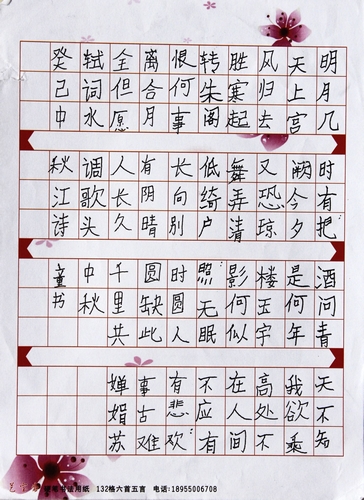 明月几时有把:酒问青天不知
天上宫阙今夕是何年我欲乘
风归去又恐琼楼玉宇高处不
胜寒起舞弄清影何似在人间
转朱阁低绮户照:无眠不应有:
恨何事长向别时圆人有悲欢
离合月有阴晴圆缺此事古难
全但愿人长久千里共婵娟苏
轼词水调歌头中秋
癸己中秋江诗童书
书法用纸 132格六首五言 电话:18955006708